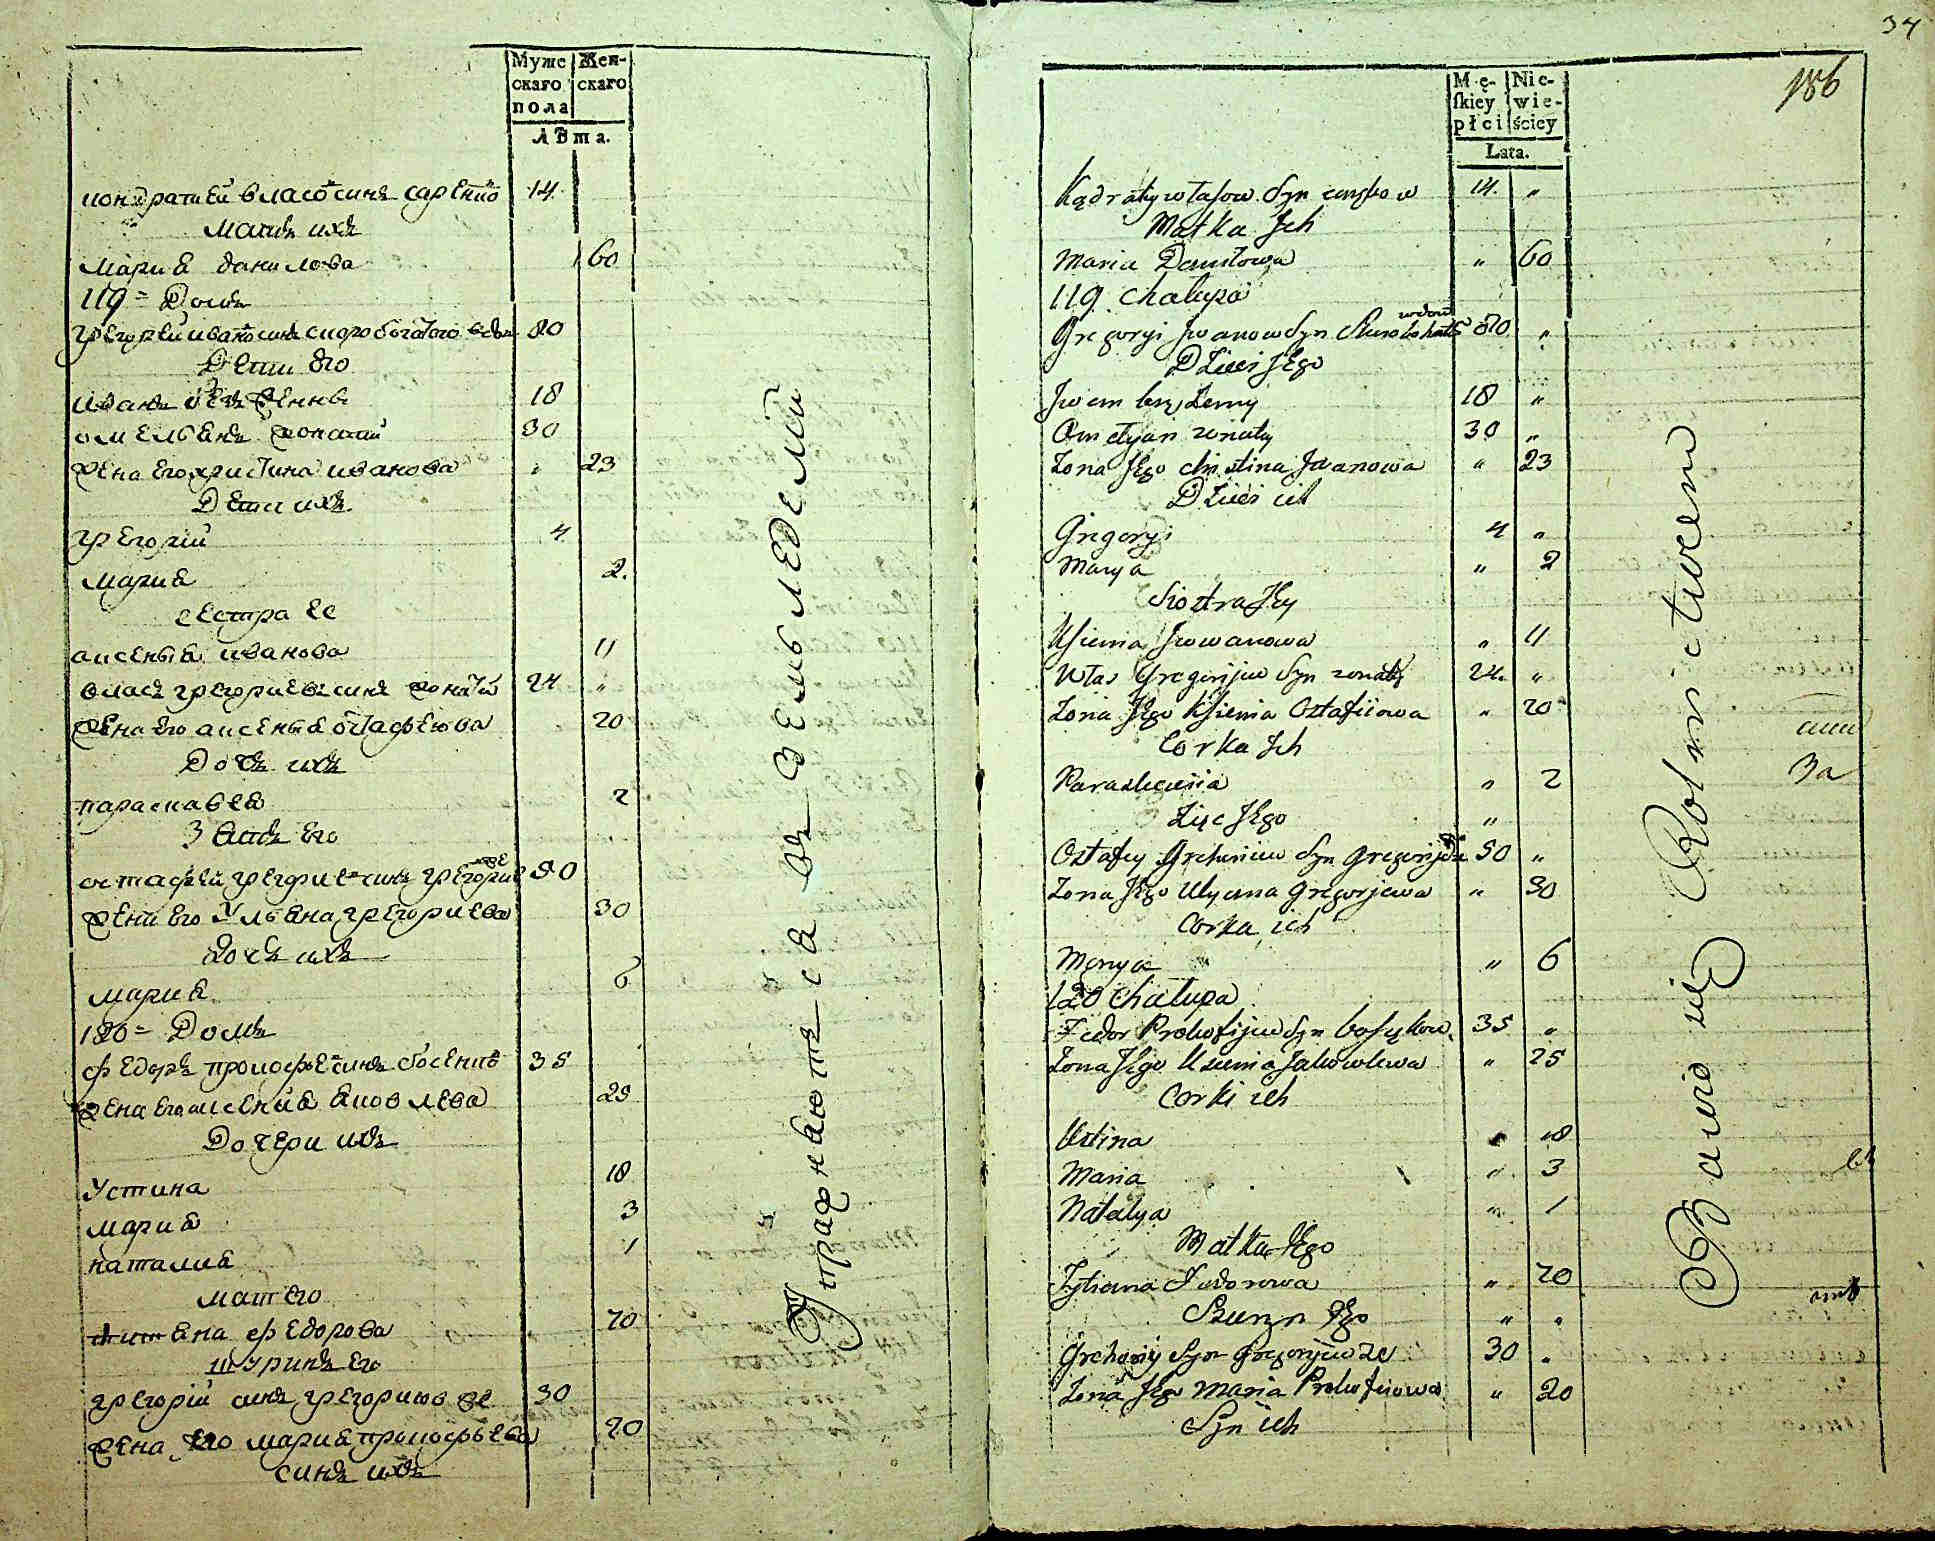 Муже скаго пола
Жен- скаго
Лѣта.
кондратий власо синъ 14
мать ихъ
мариа данилова 60
119 = Домъ
григорей ивано синъ скоробогатого вдов 80
Дети его
иванъ без женнъ 18
омельянъ жонатий 30
жена его христина иванова " 23
Дети ихъ
грегорій 4
мариа 2.
сестра ее
аксенья иванова 11
власъ григориевъ синъ жонатй 24 "
жена его аксенья остафеюва 20
Дочъ ихъ
параскавея 2
Зять его
остафей синъ грегорие 50
жена его Ульяна грегориева 30
дочъ ихъ
мариа 6
120 = Домъ
федоръ прокофе синъ 35
жена его аксения яковлева 25
Дочери ихъ
Устина 18
мариа 3
наталиа 1
мат его
титяна федорова 70
шуринъ его
грегорій синъ грегориюв же 30
жена его мариа прокофьева 20
синъ ихъ
Упражняютъся въ земьледелій
34
186
Mę- skiey płci
Nie- wie- ściey
Lata.
Kądraty własow Syn 14. "
Matka Jch
Maria Daniłowa " 60
119 Chałupa
wdow
Gregoryi Jwanow Syn 80 "
Dzieci Jego
Jwan bez żenny 18 "
Omelyan żonaty 30 "
Żona Jego christina Jwanowa " 23
Dzieci ich
Grigoryi 4 "
Marya " 2
Siostra Jey
Ksienia Jwwanowa " 11
Włas Gregorijew Syn żonaty 24. "
Żona Jego Ksienia Ostafiiowa " 20
Corka Jch
Paraskewia " 2
Zięc Jego "
Ostafiy Syn 50 "
Żona Jego Ulyana Gregorjewa " 30
Corka ich
Marya " 6
120 Chałupa
Fedor Prokofijew Syn 35 "
Żona Jego Ksienia Jakowlewa " 25
Corki ich
Ustina " 18
Maria " 3
Natalya " 1
Matka Jego
Tytiana Fedorowa " 70
Szuryn Jego " "
Syn Gregorijew że 30 "
Żona Jego Maria Prokofiiowa " 20
Syn ich
Bawio się Rolnictwem
за